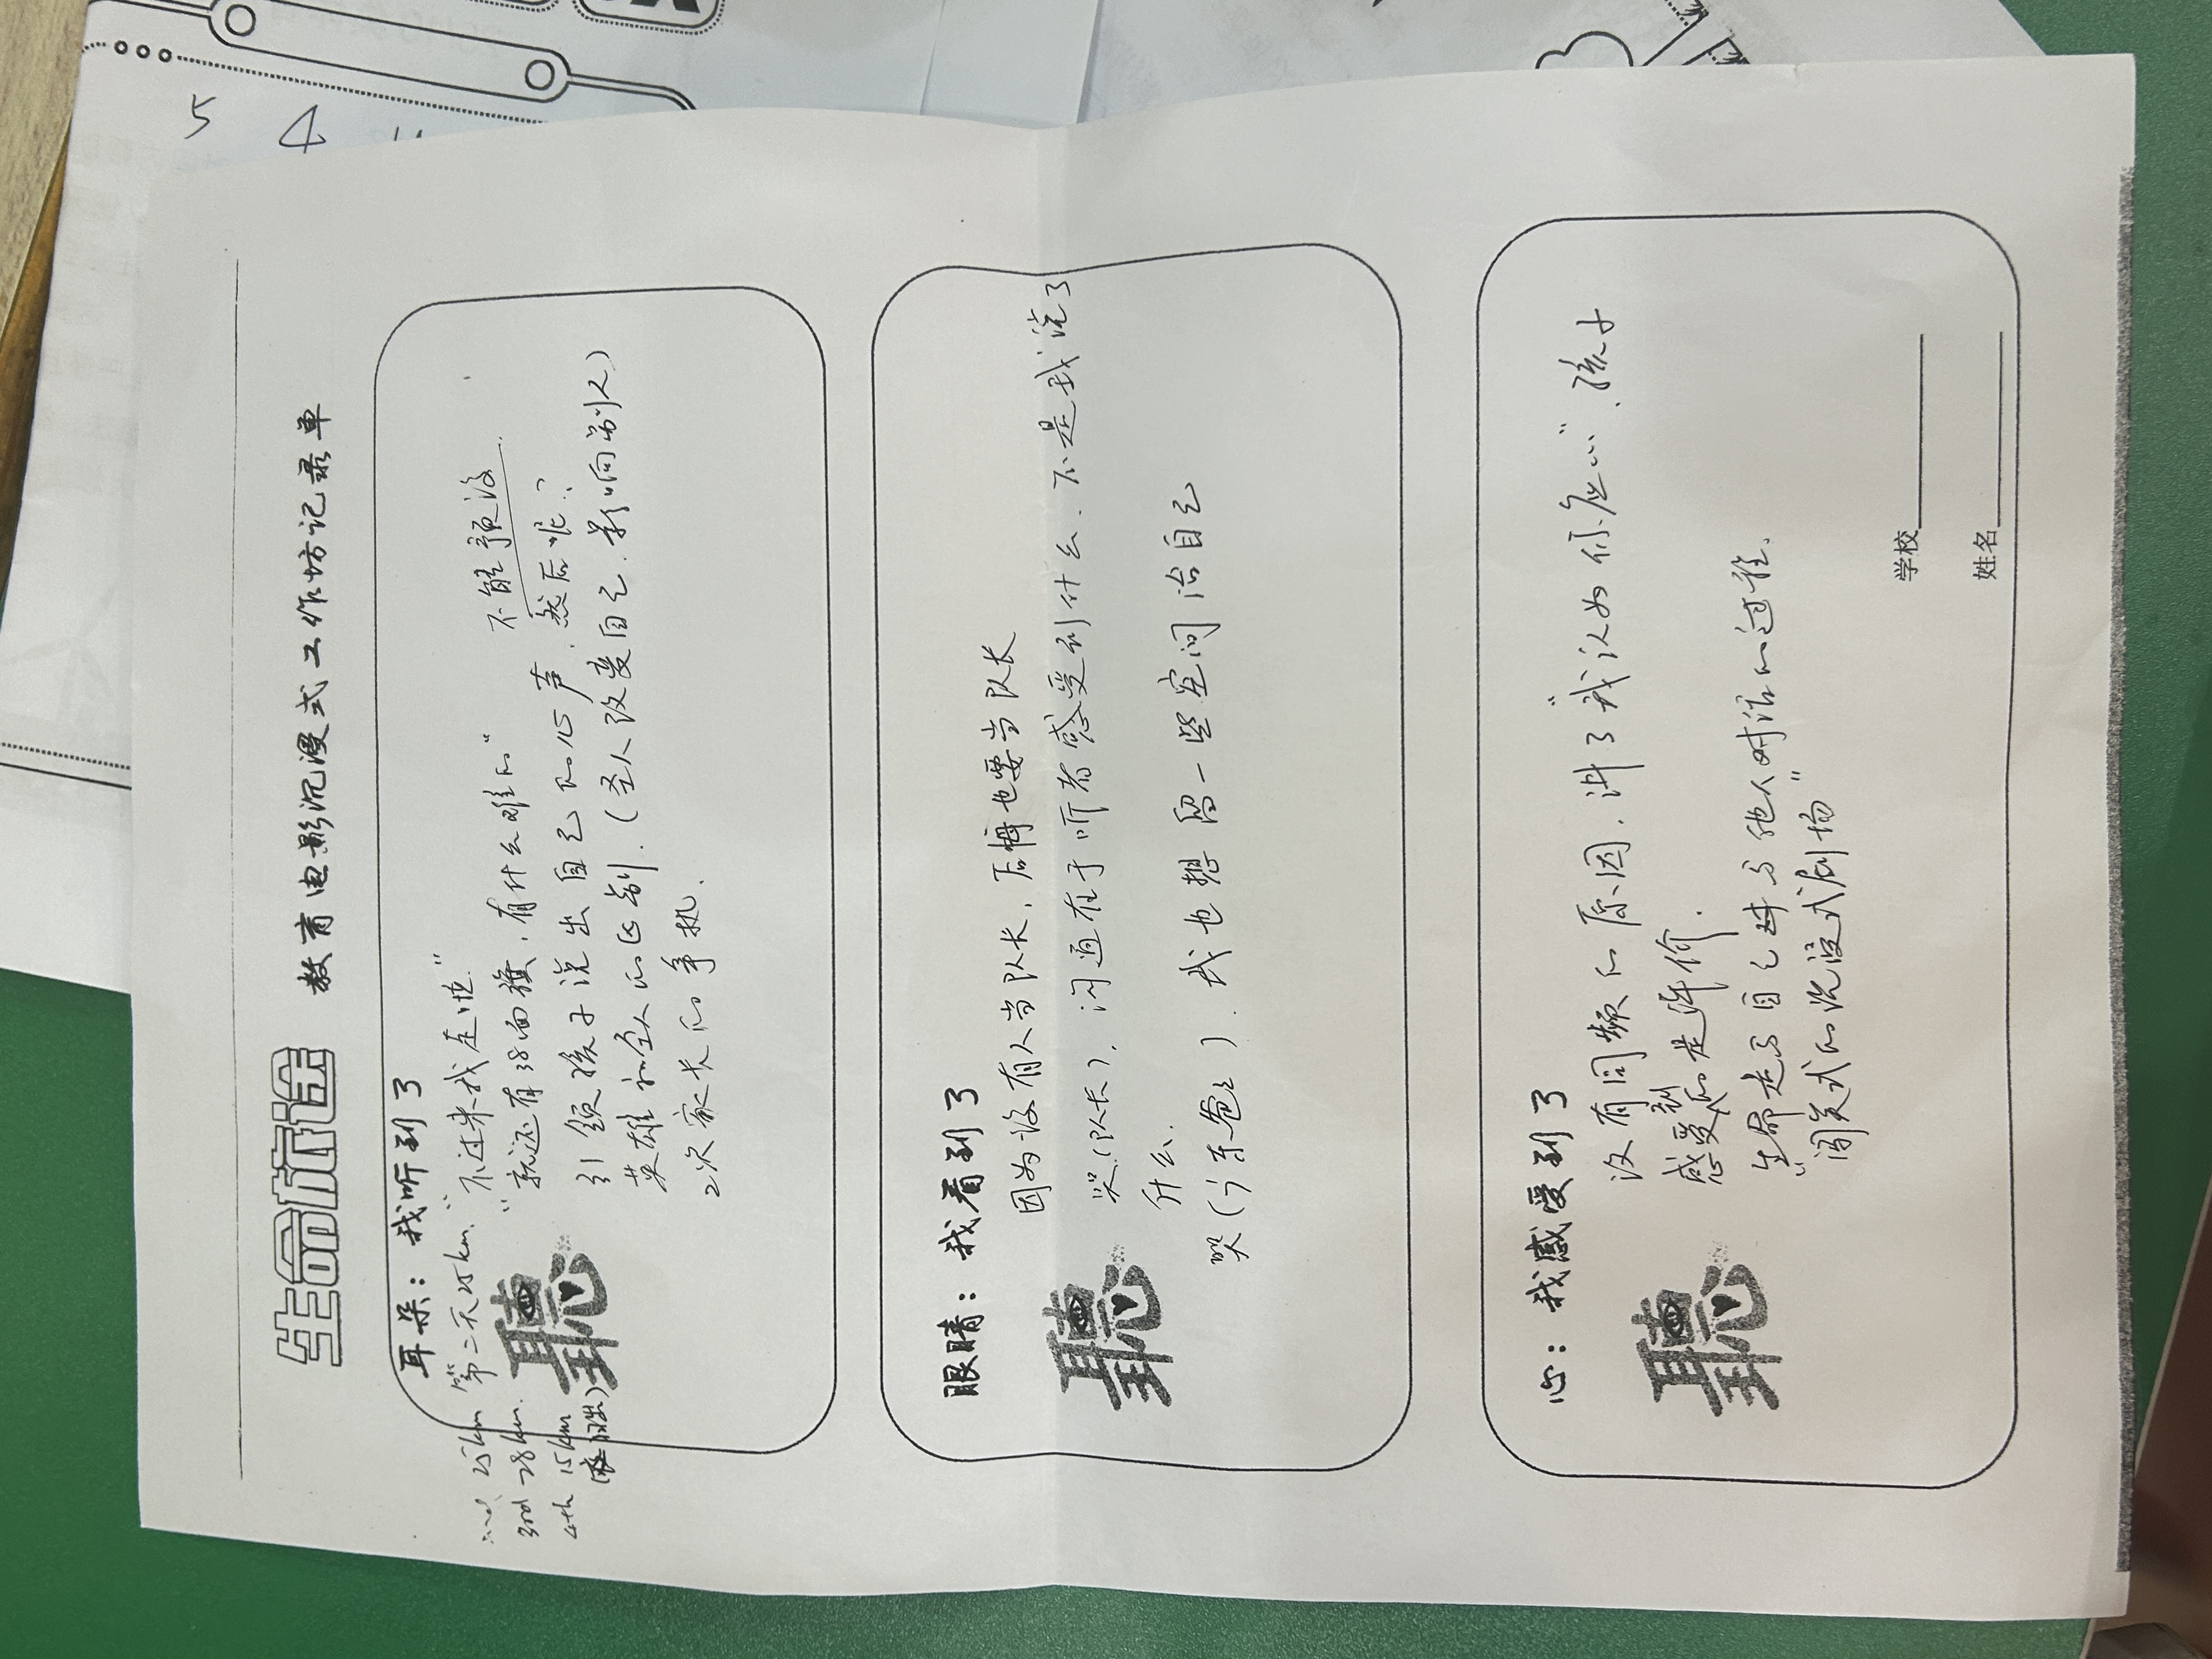 生命旅途 教育电影沉浸式工作坊记录单
耳朵：我听到了
25km 第二天25km. "不过来我走啦"
3rd 28km. 聽 "就还有38面旗，有什么难的" 不能预设
4th 15km 引领孩子说出自己的心声. 然后呢？
日出)
英雄和圣人的区别.（圣人改变自己.影响别人）
2次家长的争执.
眼睛：我看到了
因为没有人当队长，后悔也要当队长
聽 哭(队长). 沟通在于听者感受到什么. 不是我说了
什么.
哭(东爸爸). 我也想留一些空间给自己
心：我感受到了
没有同频的原因. 讲了"我认为你应…". 孩子
聽 感受到的是评价.
生命是与自己与他人对话的过程.
"闯关式的沉浸式剧场"
学校
姓名
5
4